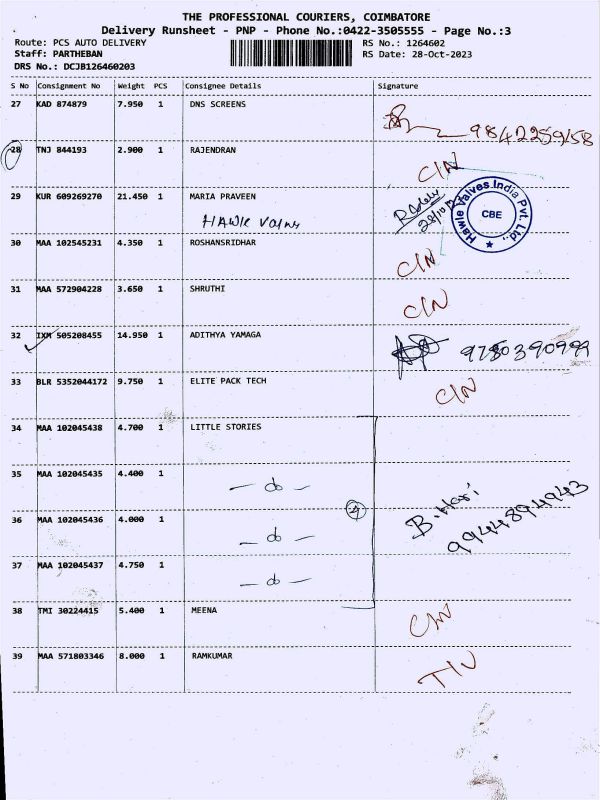 THE PROFESSIONAL COURIERS, COIMBATORE
Delivery Runsheet - PNP - Phone No.:0422-3505555 - Page No.:3
Route: PCS AUTO DELIVERY RS No.: 1264602
Staff: PARTHEBAN RS Date: 28-Oct-2023
DRS No.: DCJB126460203
S No Consignment No Weight PCS Consignee Details Signature
27 KAD 874879 7.950 1 DNS SCREENS
9842259158
28 TNJ 844193 2.900 1 RAJENDRAN C/N
29 KUR 609269270 21.450 1 MARIA PRAVEEN
HAWLE Valves
Hawle Valves India Pvt. Ltd.,
CBE
30 MAA 102545231 4.350 1 ROSHANSRIDHAR C/N
31 MAA 572904228 3.650 1 SHRUTHI C/N
32 IXM 505208455 14.950 1 ADITHYA YAMAGA
33 BLR 5352044172 9.750 1 ELITE PACK TECH C/N
34 MAA 102045438 4.700 1 LITTLE STORIES
35 MAA 102045435 4.400 1 - do -
36 MAA 102045436 4.000 1 - do - 4 B. Hari
9944894943
37 MAA 102045437 4.750 1 - do -
38 TMI 30224415 5.400 1 MEENA C/N
39 MAA 571803346 8.000 1 RAMKUMAR